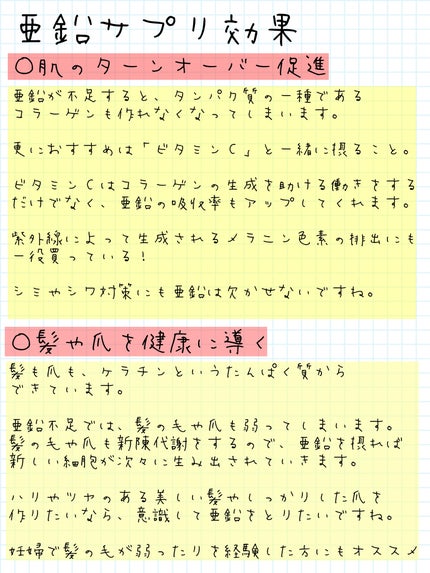 亜鉛サプリ効果
〇肌のターンオーバー促進
亜鉛が不足すると、タンパク質の一種である
コラーゲンも作れなくなってしまいます。
更におすすめは「ビタミンC」と一緒に摂ること。
ビタミンCはコラーゲンの生成を助ける働きをする
だけでなく、亜鉛の吸収率もアップしてくれます。
紫外線によって生成されるメラニン色素の排出にも
一役買っている!
シミやシワ対策にも亜鉛は欠かせないですね。
〇髪や爪を健康に導く
髪も爪も、ケラチンというたんぱく質から
できています。
亜鉛不足では、髪の毛や爪も弱ってしまいます。
髪の毛や爪も新陳代謝をするので、亜鉛を摂れば
新しい細胞が次々に生み出されていきます。
ハリやツヤのある美しい髪やしっかりした爪を
作りたいなら、意識して亜鉛をとりたいですね。
妊婦で髪の毛が弱ったりを経験した方にもオススメ